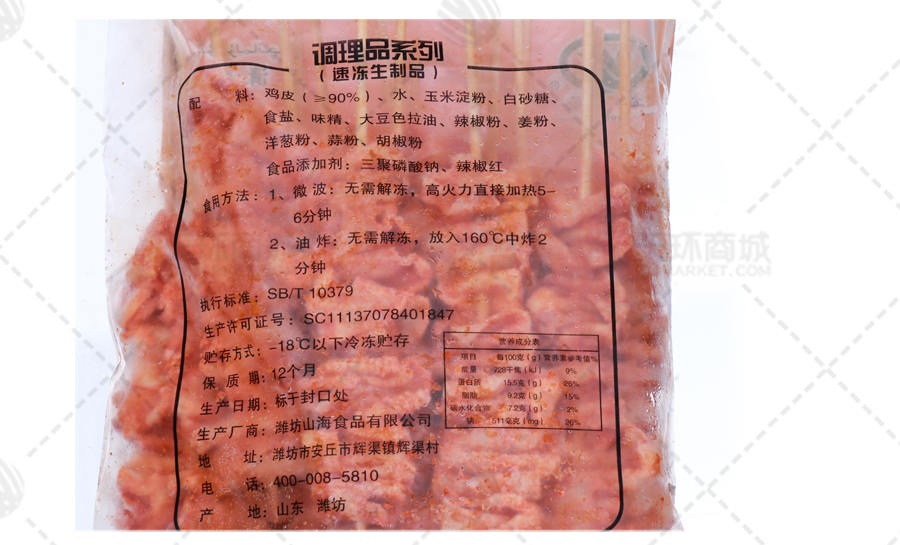 调理品系列
（速冻生制品）
配 料：鸡皮（≥90%）、水、玉米淀粉、白砂糖、
食盐、味精、大豆色拉油、辣椒粉、姜粉、
洋葱粉、蒜粉、胡椒粉
食品添加剂：三聚磷酸钠、辣椒红
食用方法：1、微波：无需解冻，高火力直接加热5-
6分钟
2、油炸：无需解冻，放入160℃中炸2
分钟
执行标准：SB/T 10379
生产许可证号：SC11137078401847
贮存方式：-18℃以下冷冻贮存
保 质 期：12个月
生产日期：标于封口处
生产厂商：潍坊山海食品有限公司
地 址：潍坊市安丘市辉渠镇辉渠村
电 话：400-008-5810
产 地：山东 潍坊
营养成分表
项目 每100克（g） 营养素参考值%
能量 728千焦（kJ） 9%
蛋白质 15.5克（g） 26%
脂肪 9.2克（g） 15%
碳水化合物 7.2克（g） 2%
钠 511毫克（mg） 26%
环商城
MARKET.COM